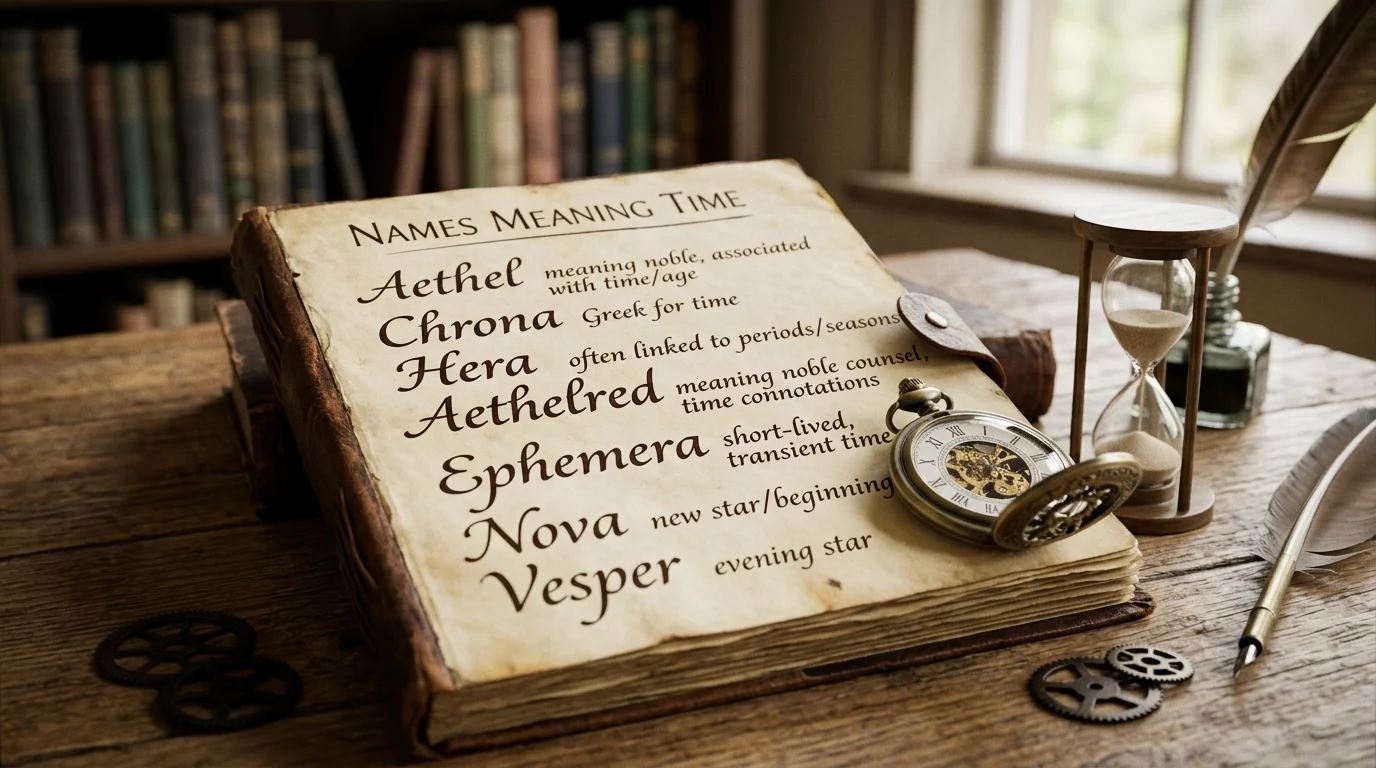 NAMES MEANING TIME
Aethel meaning noble, associated
with time/age
Chrona Greek for time
Hera often linked to periods/seasons
Aethelred meaning noble counsel,
time connotations
Ephemera short-lived,
transient time
Nova new star/beginning
Vesper evening star
XII I II